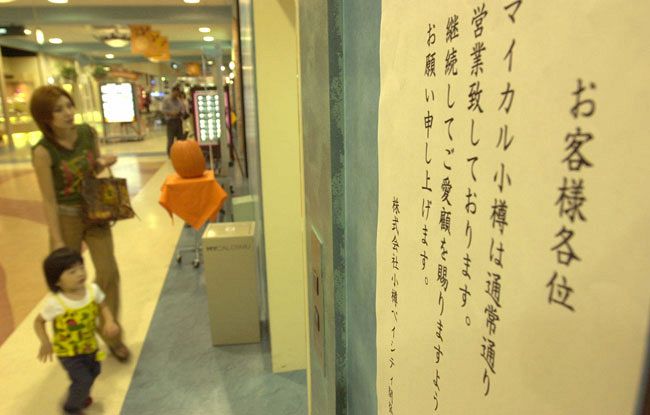 お客様各位
マイカル小樽は通常通り
営業致しております。
継続してご愛顧を賜りますよう
お願い申し上げます。
株式会社小樽ベイシティ開発
MYCAL OTARU